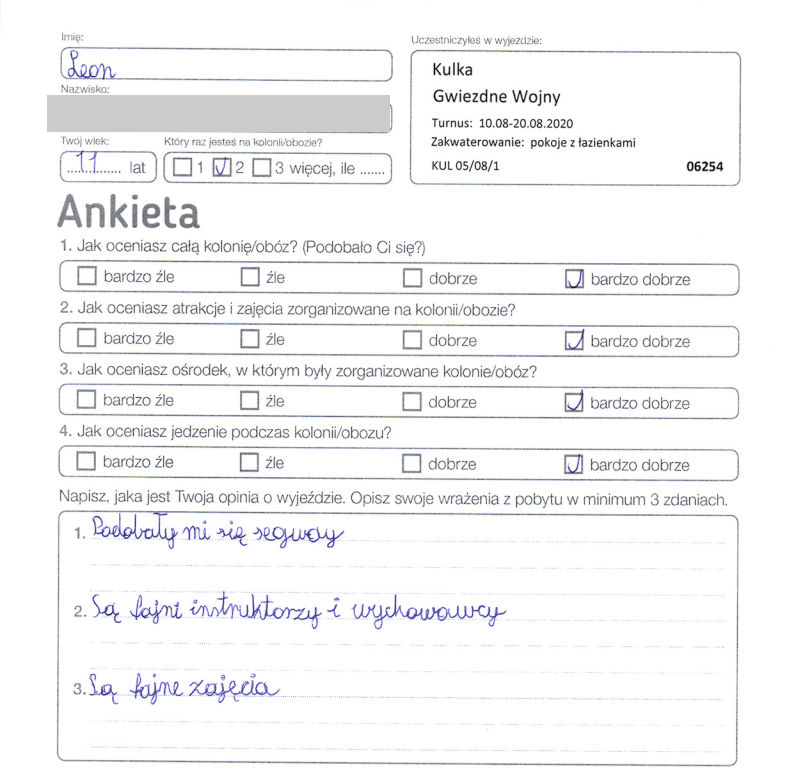 Imię:
Leon
Uczestniczyłeś w wyjeździe:
Kulka
Gwiezdne Wojny
Turnus: 10.08-20.08.2020
Zakwaterowanie: pokoje z łazienkami
KUL 05/08/1 06254
Nazwisko:
Twój wiek:
11 lat
Który raz jesteś na kolonii/obozie?
1 2 3 więcej, ile .......
Ankieta
1. Jak oceniasz całą kolonię/obóz? (Podobało Ci się?)
bardzo źle źle dobrze bardzo dobrze
2. Jak oceniasz atrakcje i zajęcia zorganizowane na kolonii/obozie?
bardzo źle źle dobrze bardzo dobrze
3. Jak oceniasz ośrodek, w którym były zorganizowane kolonie/obóz?
bardzo źle źle dobrze bardzo dobrze
4. Jak oceniasz jedzenie podczas kolonii/obozu?
bardzo źle źle dobrze bardzo dobrze
Napisz, jaka jest Twoja opinia o wyjeździe. Opisz swoje wrażenia z pobytu w minimum 3 zdaniach.
1. Podobały mi się segway
2. Są fajni instruktorzy i wychowawcy
3. Są fajne zajęcia